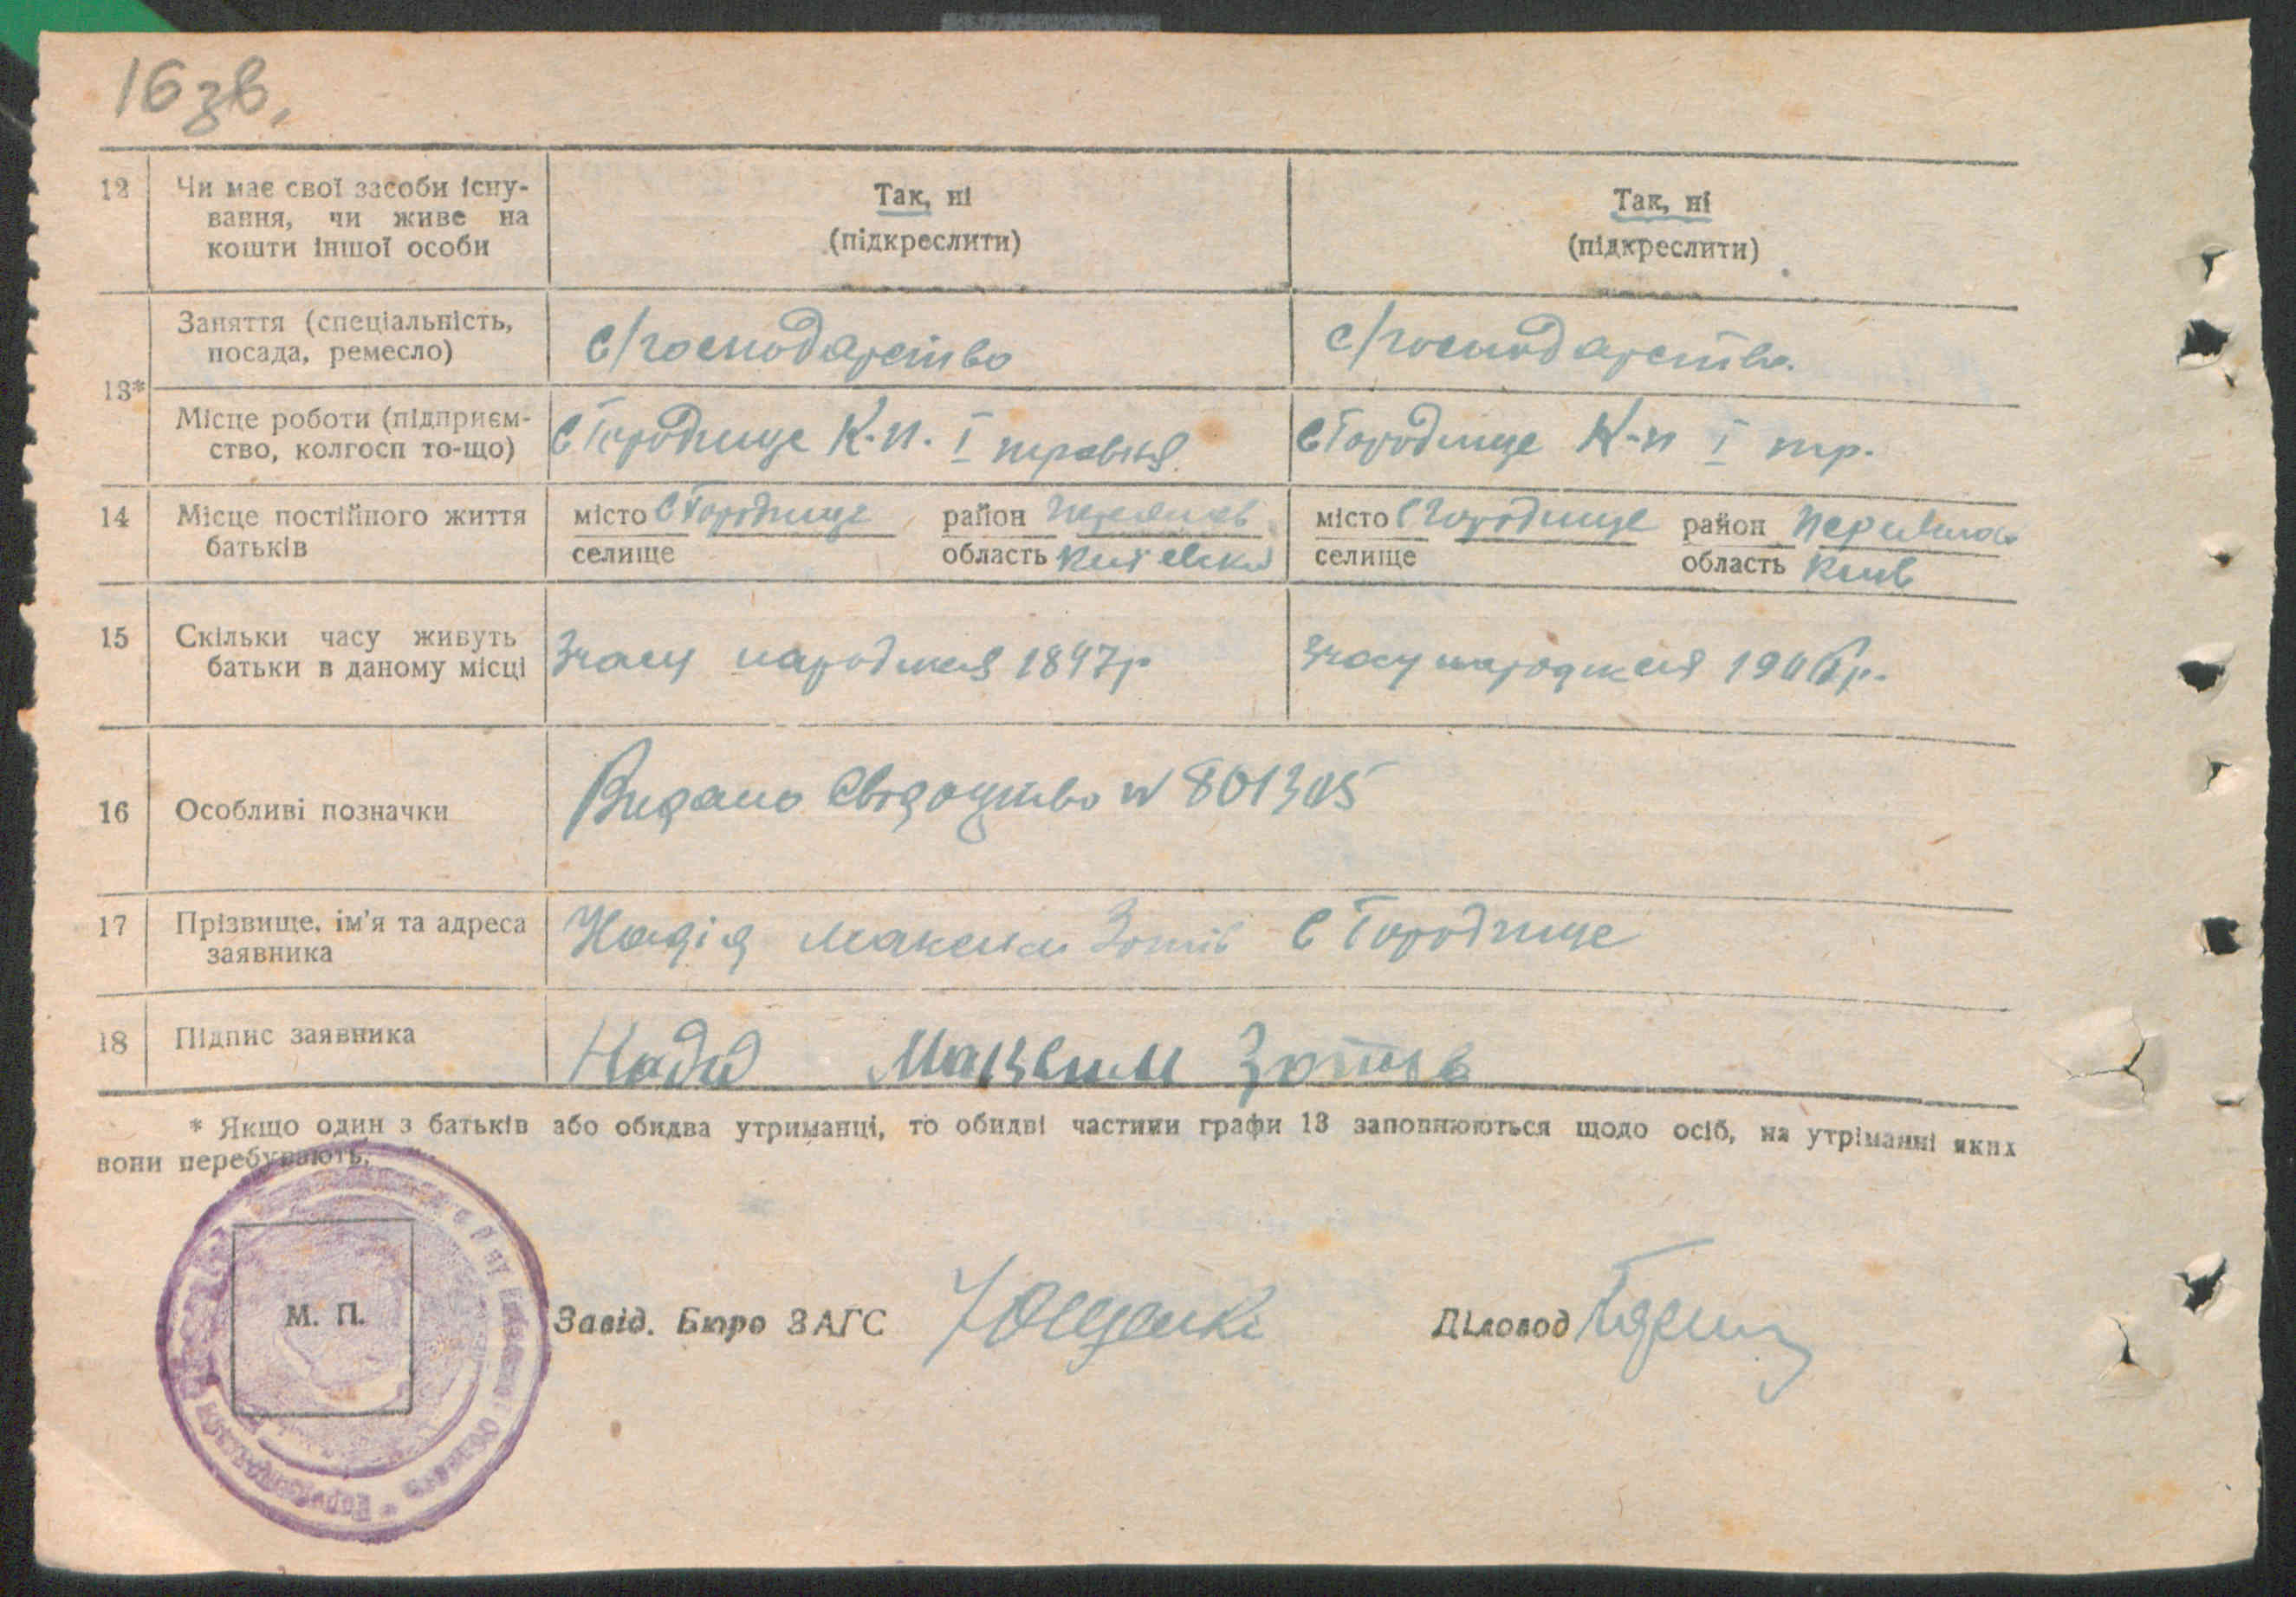 16 зв.
12 Чи має свої засоби існу-
вання, чи живе на
кошти іншої особи
Так, ні
(підкреслити)
Так, ні
(підкреслити)
13*
Заняття (спеціальність,
посада, ремесло)
с/господарство
с/господарство.
Місце роботи (підприєм-
ство, колгосп то-що)
с Городище К-п. I травня
с Городище К-п I тр.
14 Місце постійного життя
батьків
місто с Городище район
селище область
місто с Городище район
селище область Київ
15 Скільки часу живуть
батьки в даному місці
Зчасу народженя 1897р
Зчасу народженя
16 Особливі позначки
Видано свідоцтво № 801305
17 Прізвище, ім'я та адреса
заявника
Надія Максим Зотів с Городище
18 Підпис заявника
Надія Максим
* Якщо один з батьків або обидва утриманці, то обидві частини графи 13 заповнюються щодо осіб, на утріманні яких
вони перебувають.
М. П.
Завід. Бюро ЗАГС
Діловод